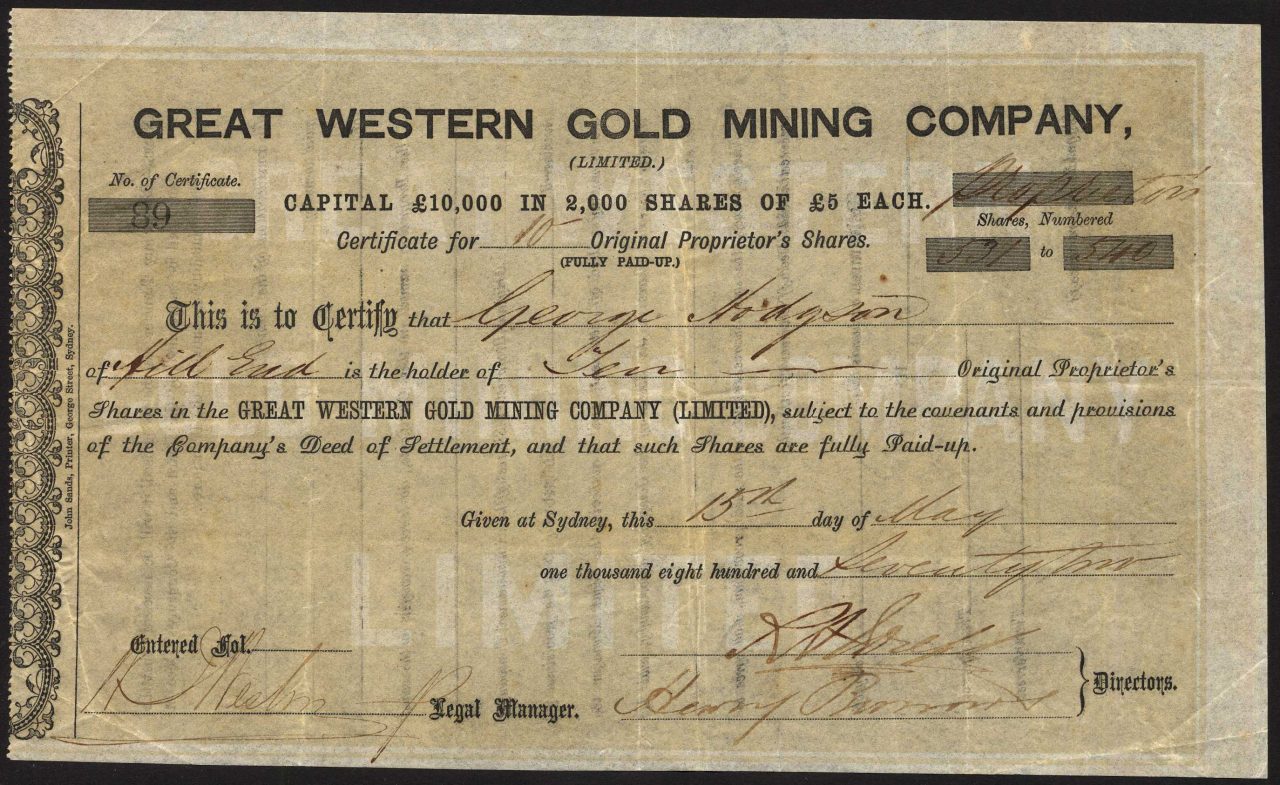 GREAT WESTERN GOLD MINING COMPANY,
(LIMITED.)
No. of Certificate.
89
CAPITAL £10,000 IN 2,000 SHARES OF £5 EACH.
Shares, Numbered
531 to 540
Certificate for 10 Original Proprietor's Shares.
(FULLY PAID-UP.)
This is to Certify that George Hodgson
of Hill End is the holder of Ten — Original Proprietor's
Shares in the GREAT WESTERN GOLD MINING COMPANY (LIMITED), subject to the covenants and provisions
of the Company's Deed of Settlement, and that such Shares are fully Paid-up.
Given at Sydney, this 15th day of May
one thousand eight hundred and Seventy two
Entered Fol.
Legal Manager.
Henry
Directors.
John Sands, Printer, George Street, Sydney.
LIMITED